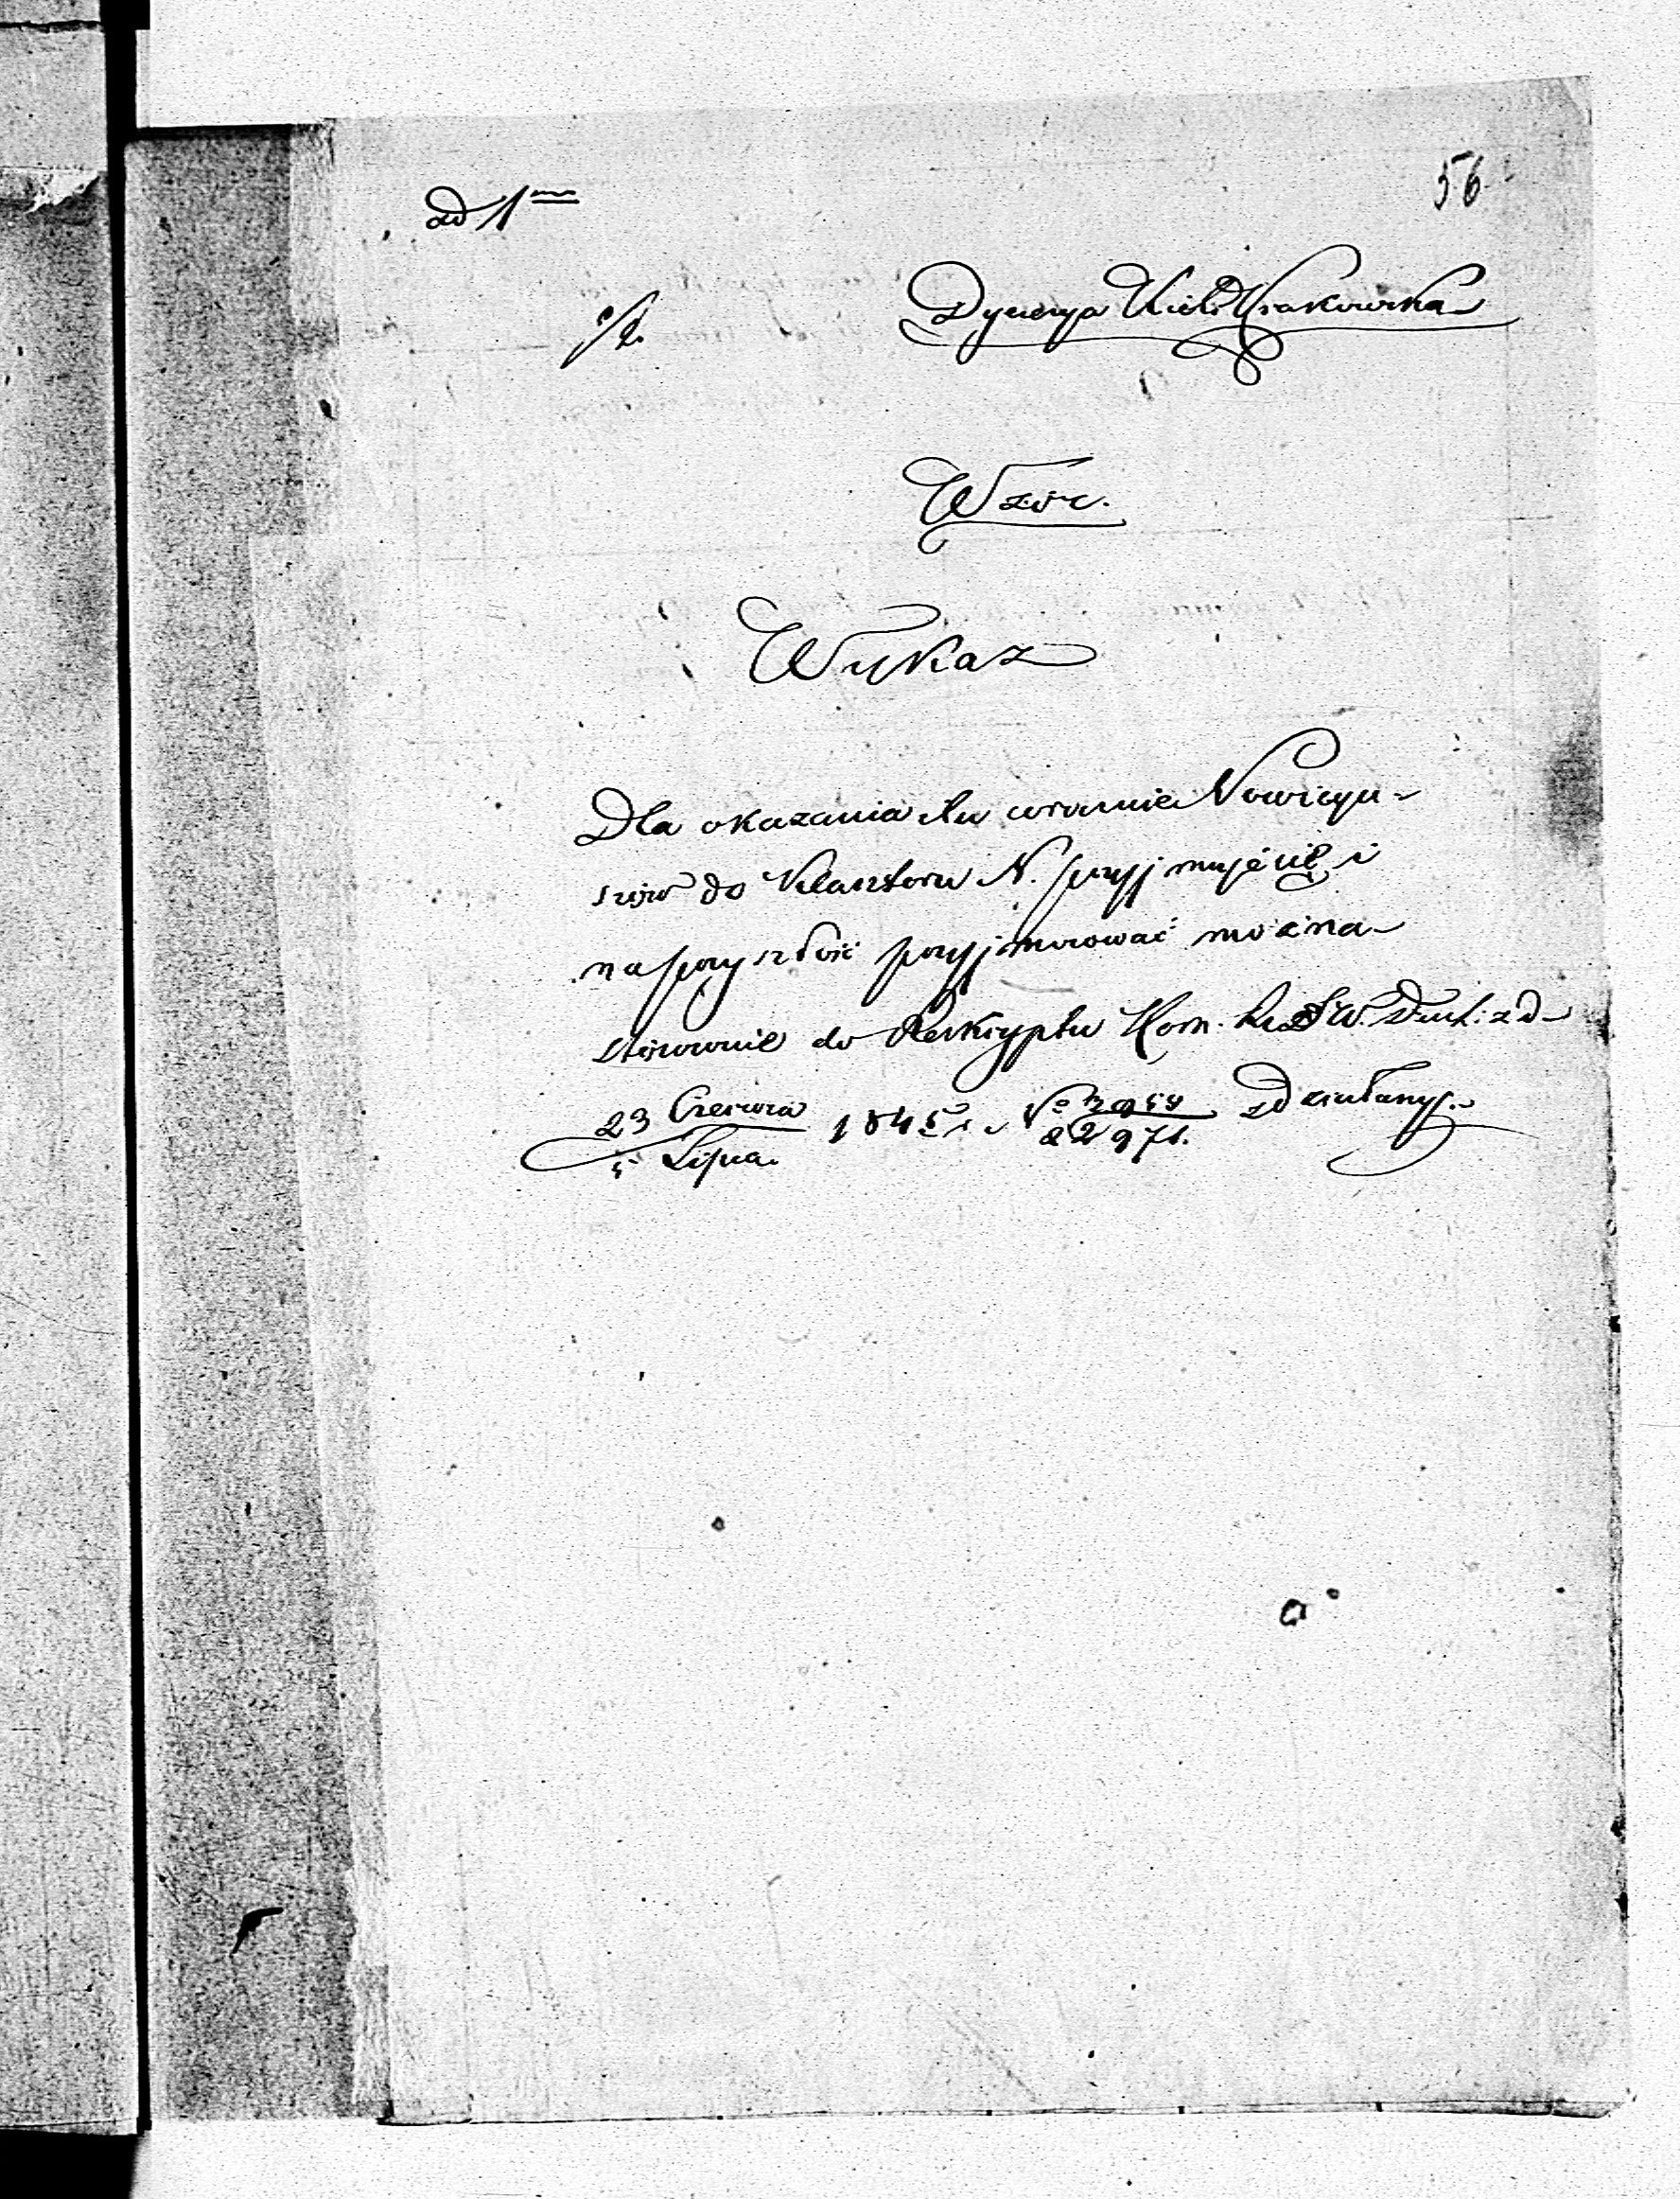 56
ad 1
Dyecezya Kiel: Krakowska
Wzór.
Wykaz
Dla okazania ilu corocznie Nowicyu-
szów do Klasztoru N. przyjmuje się i
na przyszłość przyjmować można
stósownie do Reskryptu Kom. R. S. W. Duch: z d
23 Czerwca
5 Lipca 1845 r. No
22971. zdziałany.